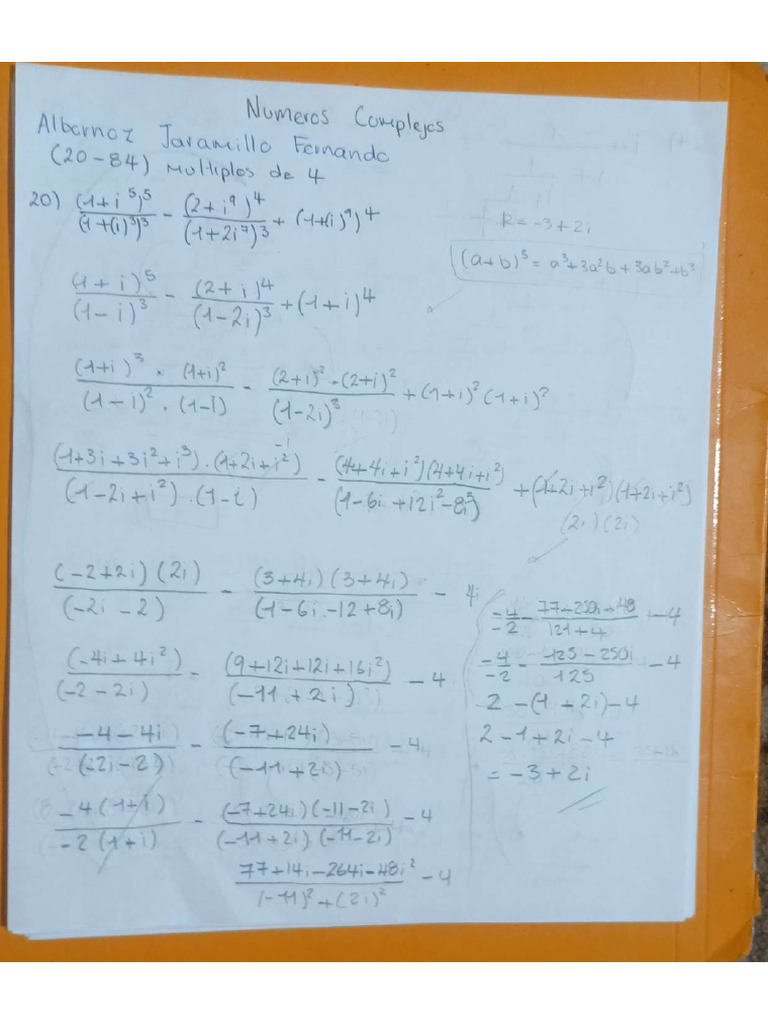 Numeros Complejos
Albornoz Jaramillo Fernando
(20-84) Multiplos de 4
20) (1+i⁵)⁵/(1+(i)³)³ - (2+i⁹)⁴/(1+2i⁷)³ + (1+(i)⁹)⁴
R = -3+2i
(a+b)³ = a³+3a²b+3ab²+b³
(1+i)⁵/(1-i)³ - (2+i)⁴/(1-2i)³ + (1+i)⁴
(1+i)³ × (1+i)²/(1-i)² · (1-i) - (2+i)² · (2+i)²/(1-2i)³ + (1+i)² (1+i)²
(1+3i+3i²+i³) · (1+2i+i²)/(1-2i+i²) · (1-i) - (4+4i+i²)(4+4i+i²)/(1-6i+12i²-8i³) + (1+2i+i²)(1+2i+i²)
-1
(2i) (2i)
(-2+2i) (2i)/(-2i-2) - (3+4i) (3+4i)/(1-6i-12+8i) - 4i
(-4i+4i²)/(-2-2i) - (9+12i+12i+16i²)/(-11+2i) - 4
-4-4i/(-2i-2) - (-7+24i)/(-11+2i) - 4
-4(1+i)/-2(1+i) - (-7+24i)(-11-2i)/(-11+2i)(-11-2i) - 4
77+14i-264i-48i²/(-11)²+(2i)² - 4
-4/-2 - 77-250i+48/121+4 - 4
-4/-2 - 125-250i/125 - 4
2 - (1+2i) - 4
2 - 1 + 2i - 4
= -3+2i